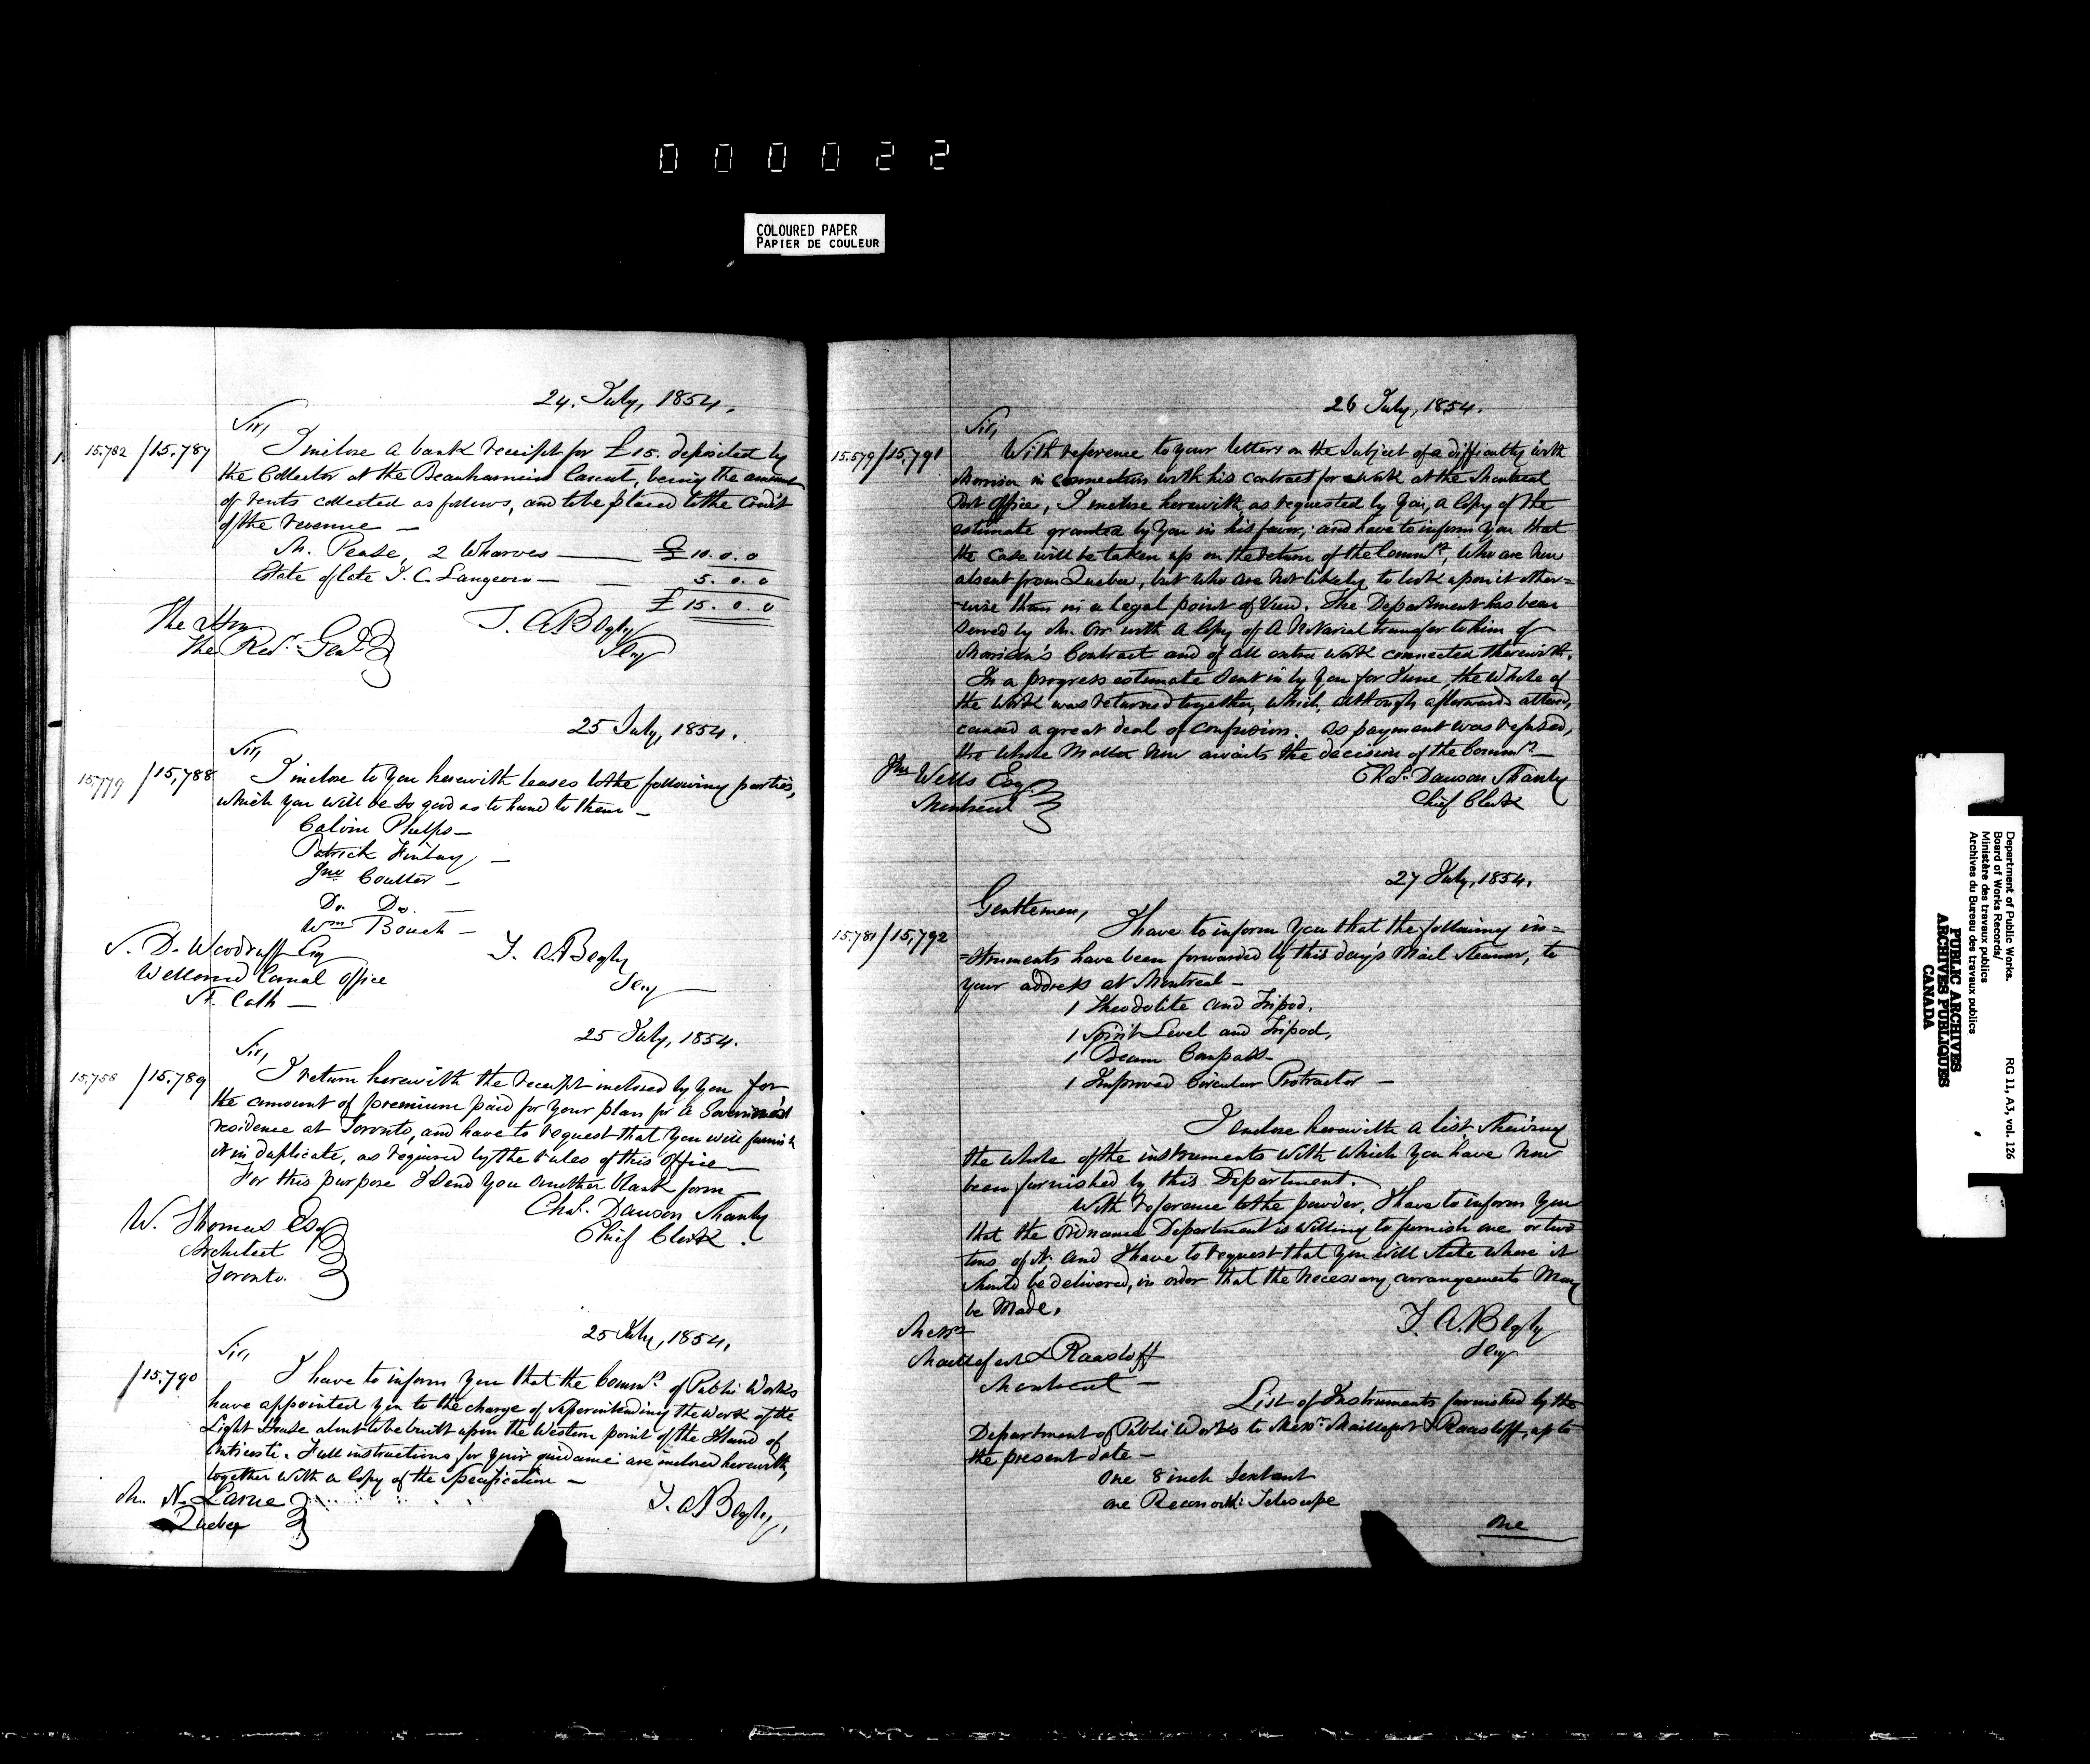 000022
COLOURED PAPER
PAPIER DE COULEUR
24. July, 1854.
Sir,
15.782 /15.787
I inclose a bank receipt for £15. deposited by
the Collector at the Beauharnois Canal, being the amount
of rents collected as follows, and to be placed to the Credit
of the revenue —
M. Pease, 2 Wharves — £10.0.0
Estate of late T. C. Langevin — 5.0.0
£15.0.0
The Hon
The Rec. Genl.
T. A. Begly
Secy
25 July, 1854.
Sir,
15,779 /15,788
I inclose to you herewith leases to the following parties,
which you will be so good as to hand to them —
Calvin Phelps —
Patrick Finlay —
Jno. Coulter —
Do. Do.
Wm. Bouch —
S. D. Woodruff Esq
Welland Canal Office
St. Cath —
T. A. Begly
Secy
25 July, 1854.
Sir,
15,758 /15,789
I return herewith the receipt inclosed by you for
the amount of premium paid for your plan for a Government
residence at Toronto, and have to request that you will furnish
it in duplicate, as required by the rules of this office —
For this purpose I send you another blank form
Chas. Dawson Shanly
Chief Clerk.
W. Thomas Esq
Architect
Toronto.
25 July, 1854.
Sir,
/15.790
I have to inform you that the Commrs. of Public Works
have appointed you to the charge of superintending the work of the
Light House about to be built upon the Western point of the Island of
Anticosti. Full instructions for your guidance are inclosed herewith,
together with a Copy of the Specification —
Mr. N. Larue
Quebec
T. A. Begly,
26 July, 1854.
Sir,
15.579/15,791
With reference to your letters on the subject of a difficulty with
Morrison in connection with his contract for work at the Montreal
Post Office, I inclose herewith, as requested by you, a Copy of the
estimate granted by you in his favor; and have to inform you that
the case will be taken up on the return of the Commrs., who are now
absent from Quebec, but who are not likely to look upon it other=
=wise than in a legal point of view. The Department has been
served by Mr. Orr with a Copy of a Notarial transfer to him of
Morrison's Contract and of all extra work connected therewith.
In a progress estimate sent in by you for June, the whole of
the work was returned together, which, although afterwards altered,
caused a great deal of confusion. As payment was refused,
the whole matter now awaits the decision of the Commrs. —
Jno Wells Esq
Montreal
Chs. Dawson Shanly
Chief Clerk
27 July, 1854.
Gentlemen,
15.781/15,792
I have to inform you that the following in=
=struments have been forwarded by this day's Mail Steamer, to
your address at Montreal —
1 Theodolite and Tripod.
1 Spirit Level and Tripod,
1 Beam Compass —
1 Improved Circular Protractor —
I enclose herewith a list shewing
the whole of the instruments with which you have now
been furnished by this Department.
With reference to the powder, I have to inform you
that the Ordnance Department is willing to furnish one or two
tons of it, and I have to request that you will state where it
should be delivered, in order that the necessary arrangements may
be made.
T. A. Begly
Secy
Messrs
Maillefert & Raasloff
Montreal —
List of Instruments furnished by the
Department of Public Works to Messrs. Maillefert & Raasloff, up to
the present date —
One 8 inch Sextant
One Telescope
One
Department of Public Works.
Board of Works Records/
Ministère des travaux publics
Archives du Bureau des travaux publics
RG 11, A3, vol. 126
PUBLIC ARCHIVES
ARCHIVES PUBLIQUES
CANADA